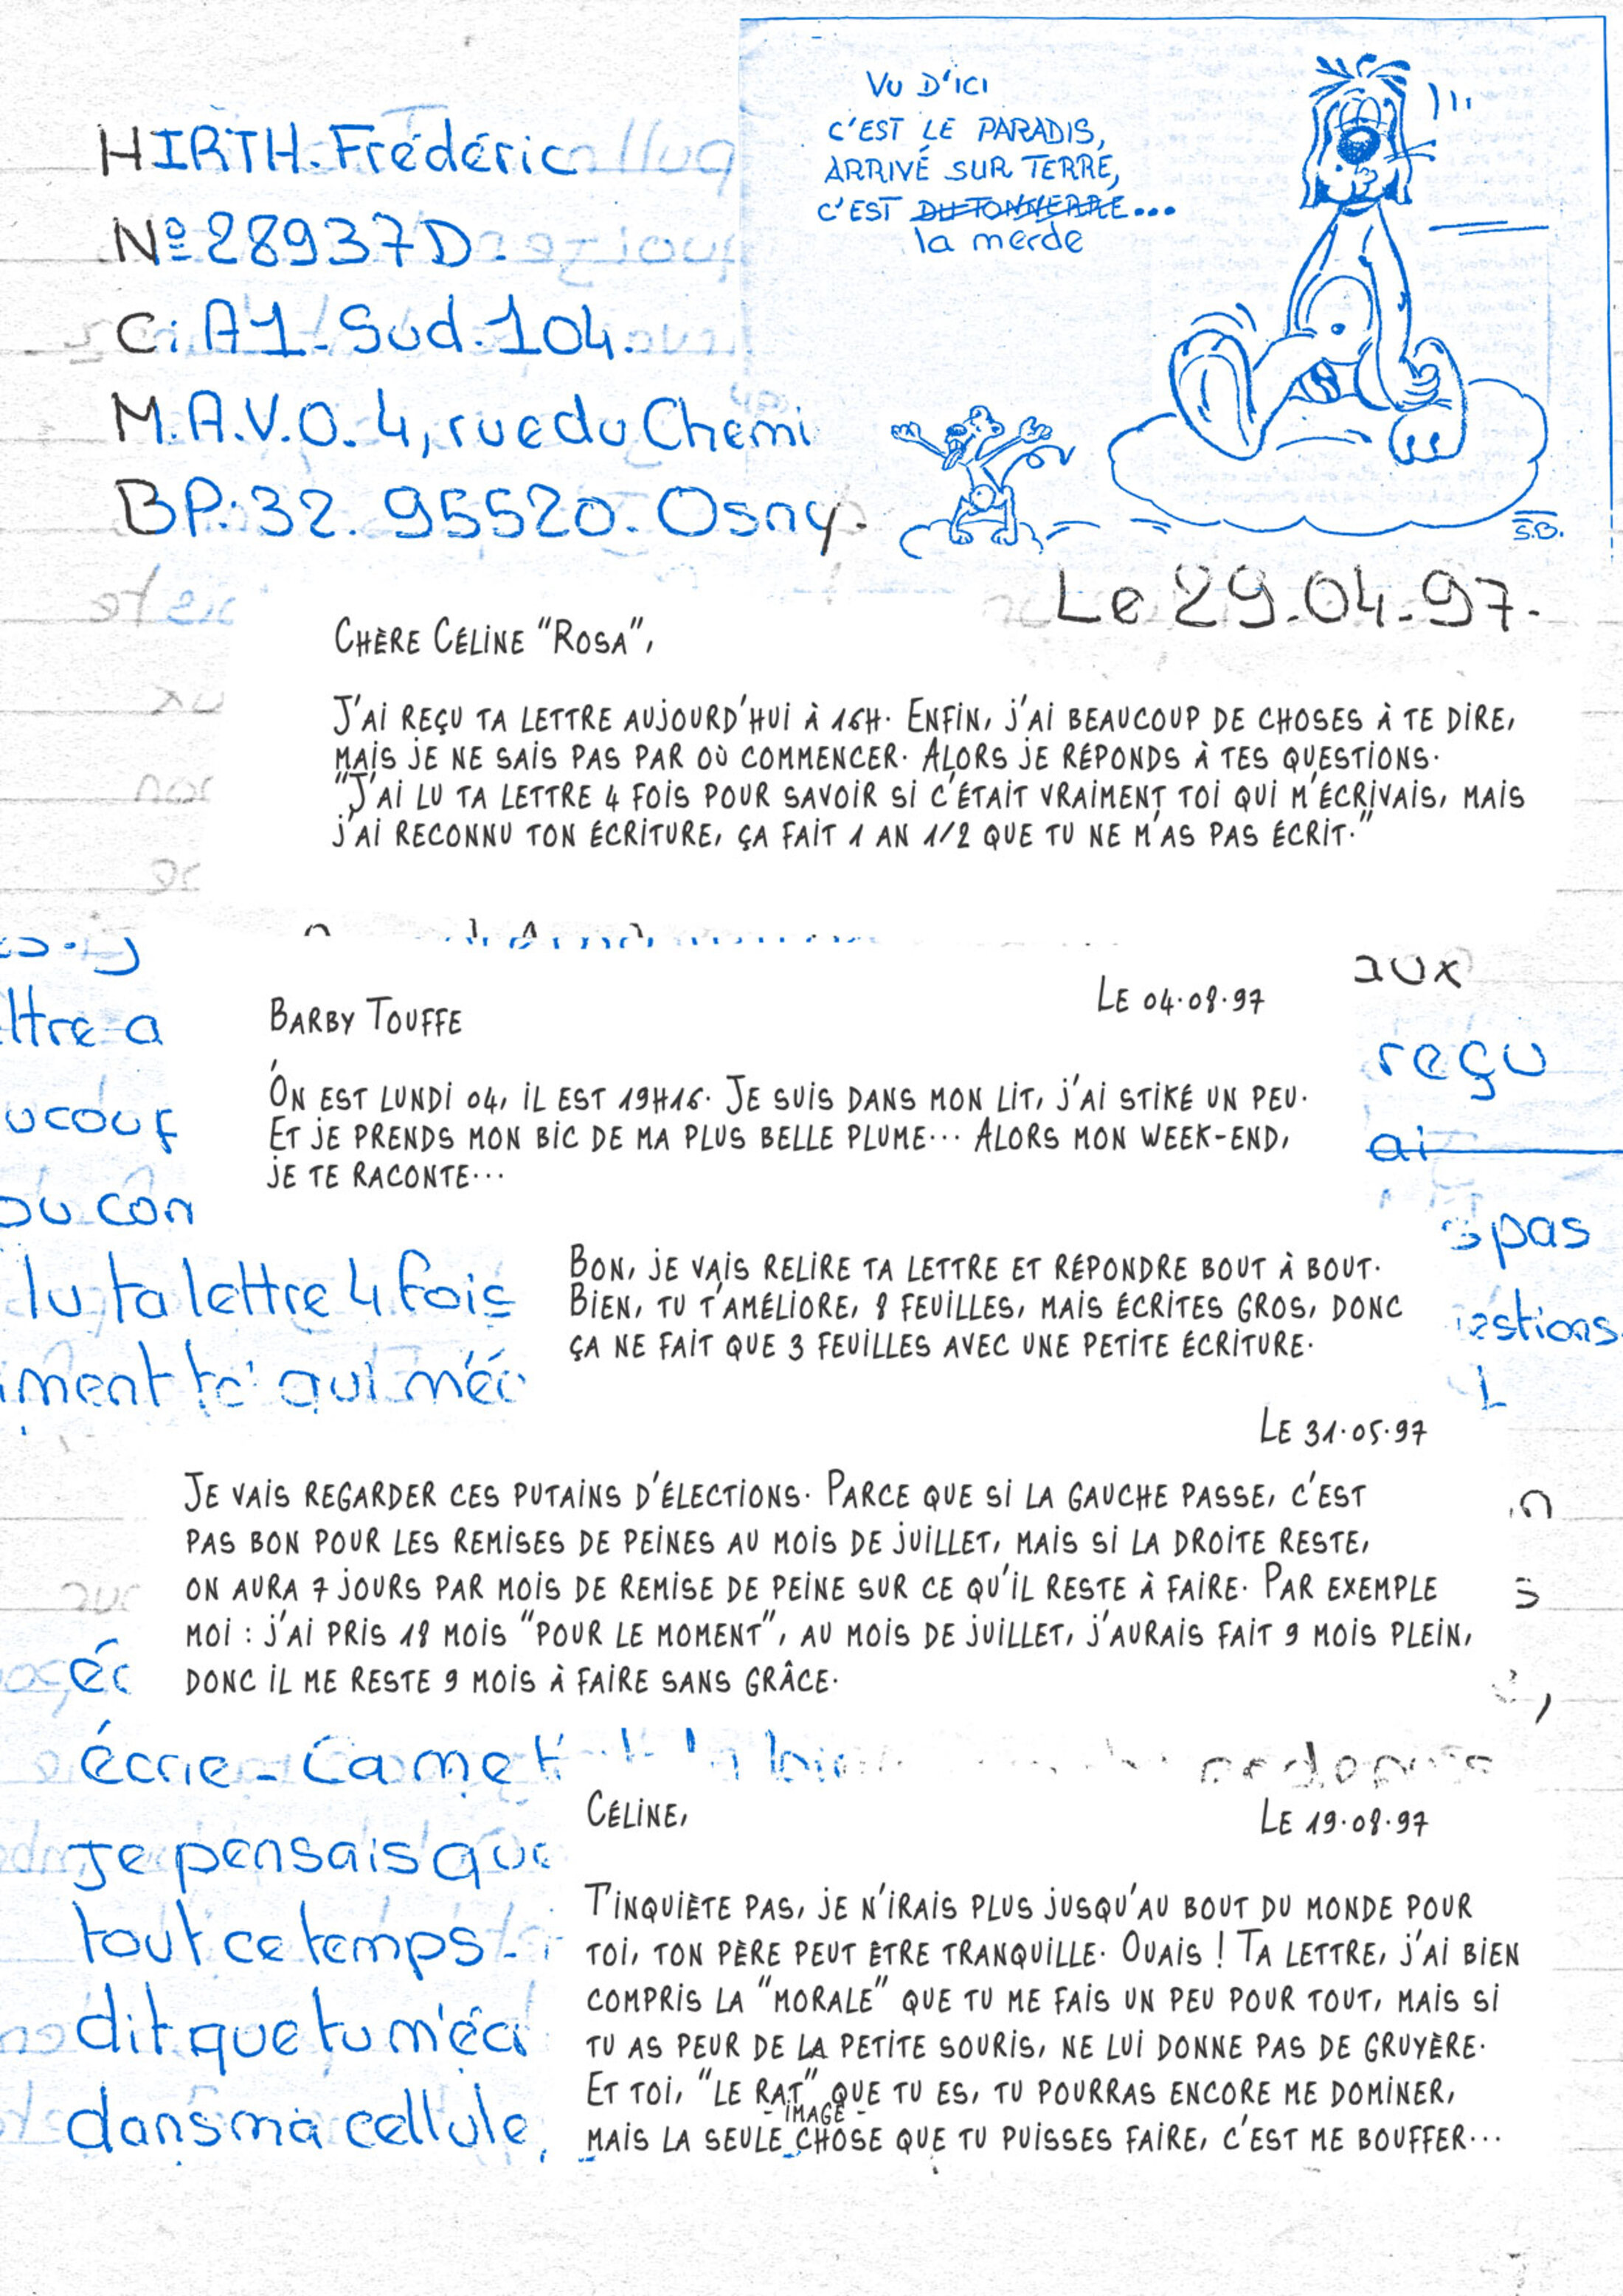 HIRTH. Frédéric
Nº 28937D.
C: A1. Sud. 104.
M.A.V.O. 4, rue du Chemi
BP: 32. 95520. Osny.
VU D'ICI
C'EST LE PARADIS,
ARRIVÉ SUR TERRE,
C'EST DU TONNERRE...
la merde
S.B.
Le 29.04.97.
CHÈRE CÉLINE "ROSA",
J'AI REÇU TA LETTRE AUJOURD'HUI À 16H. ENFIN, J'AI BEAUCOUP DE CHOSES À TE DIRE,
MAIS JE NE SAIS PAS PAR OÙ COMMENCER. ALORS JE RÉPONDS À TES QUESTIONS.
"J'AI LU TA LETTRE 4 FOIS POUR SAVOIR SI C'ÉTAIT VRAIMENT TOI QUI M'ÉCRIVAIS, MAIS
J'AI RECONNU TON ÉCRITURE, ÇA FAIT 1 AN 1/2 QUE TU NE M'AS PAS ÉCRIT."
aux
ttre a
reçu
ucoup
ai
ou con
pas
lu ta lettre 4 fois
estions.
iment toi qui m'éc
LE 04.08.97
BARBY TOUFFE
ON EST LUNDI 04, IL EST 19H16. JE SUIS DANS MON LIT, J'AI STIKÉ UN PEU.
ET JE PRENDS MON BIC DE MA PLUS BELLE PLUME... ALORS MON WEEK-END,
JE TE RACONTE...
BON, JE VAIS RELIRE TA LETTRE ET RÉPONDRE BOUT À BOUT.
BIEN, TU T'AMÉLIORE, 8 FEUILLES, MAIS ÉCRITES GROS, DONC
ÇA NE FAIT QUE 3 FEUILLES AVEC UNE PETITE ÉCRITURE.
LE 31.05.97
JE VAIS REGARDER CES PUTAINS D'ÉLECTIONS. PARCE QUE SI LA GAUCHE PASSE, C'EST
PAS BON POUR LES REMISES DE PEINES AU MOIS DE JUILLET, MAIS SI LA DROITE RESTE,
ON AURA 7 JOURS PAR MOIS DE REMISE DE PEINE SUR CE QU'IL RESTE À FAIRE. PAR EXEMPLE
MOI : J'AI PRIS 18 MOIS "POUR LE MOMENT", AU MOIS DE JUILLET, J'AURAIS FAIT 9 MOIS PLEIN,
DONC IL ME RESTE 9 MOIS À FAIRE SANS GRÂCE.
éc
écrie - Ca met
Je pensais que
tout ce temps -
dit que tu m'éci
dans ma cellule,
CÉLINE,
LE 19.08.97
T'INQUIÈTE PAS, JE N'IRAIS PLUS JUSQU'AU BOUT DU MONDE POUR
TOI, TON PÈRE PEUT ÊTRE TRANQUILLE. OUAIS ! TA LETTRE, J'AI BIEN
COMPRIS LA "MORALE" QUE TU ME FAIS UN PEU POUR TOUT, MAIS SI
TU AS PEUR DE LA PETITE SOURIS, NE LUI DONNE PAS DE GRUYÈRE.
ET TOI, "LE RAT" QUE TU ES, TU POURRAS ENCORE ME DOMINER,
- IMAGE -
MAIS LA SEULE CHOSE QUE TU PUISSES FAIRE, C'EST ME BOUFFER...